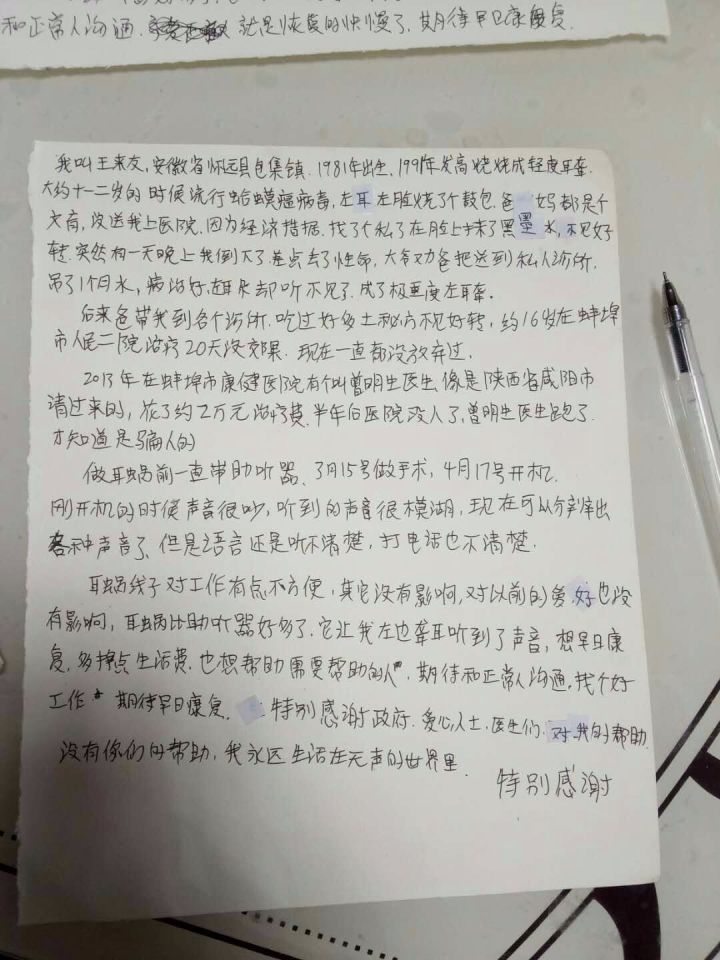 和正常人沟通. 就是恢复的快慢了. 期待早日康复.
我叫王来友, 安徽省怀远县包集镇. 1981年出生, 1991年发高烧烧成轻度耳聋.
大约十一二岁的时候流行蛤蟆瘟病毒, 左耳左脸烧了个鼓包. 爸妈都是个
文盲, 没送我上医院. 因为经济拮据. 找了个私了在脸上抹了黑墨水, 不见好
转. 突然有一天晚上我倒下了. 差点去了性命. 大爷劝爸把送到私人诊所.
吊了1个月水, 病治好, 耳朵却听不见了. 成了极重度左耳聋.
后来爸带我到各个诊所. 吃过好多土秘方不见好转, 约16岁在蚌埠
市人民二院治疗20天没效果. 现在一直都没放弃过.
2013年在蚌埠市康健医院有个叫曾明生医生. 像是陕西省咸阳市
请过来的, 花了约2万元治疗费. 半年后医院没人了, 曾明生医生跑了.
才知道是骗人的
做耳蜗前一直带助听器. 3月15号做手术, 4月17号开机.
刚开机的时候声音很吵, 听到的声音很模湖, 现在可以分辨出
各种声音了. 但是语言还是听不清楚, 打电话也不清楚.
耳蜗线子对工作有点不方便, 其它没有影响, 对以前的爱好也没
有影响, 耳蜗比助听器好多了. 它让我左边聋耳听到了声音, 想早日康
复. 多挣点生活费. 也想帮助需要帮助的人. 期待和正常人沟通. 找个好
工作. 期待早日康复. 特别感谢政府. 爱心人士, 医生们. 对我的帮助.
没有你们的帮助, 我永远生活在无声的世界里.
特别感谢